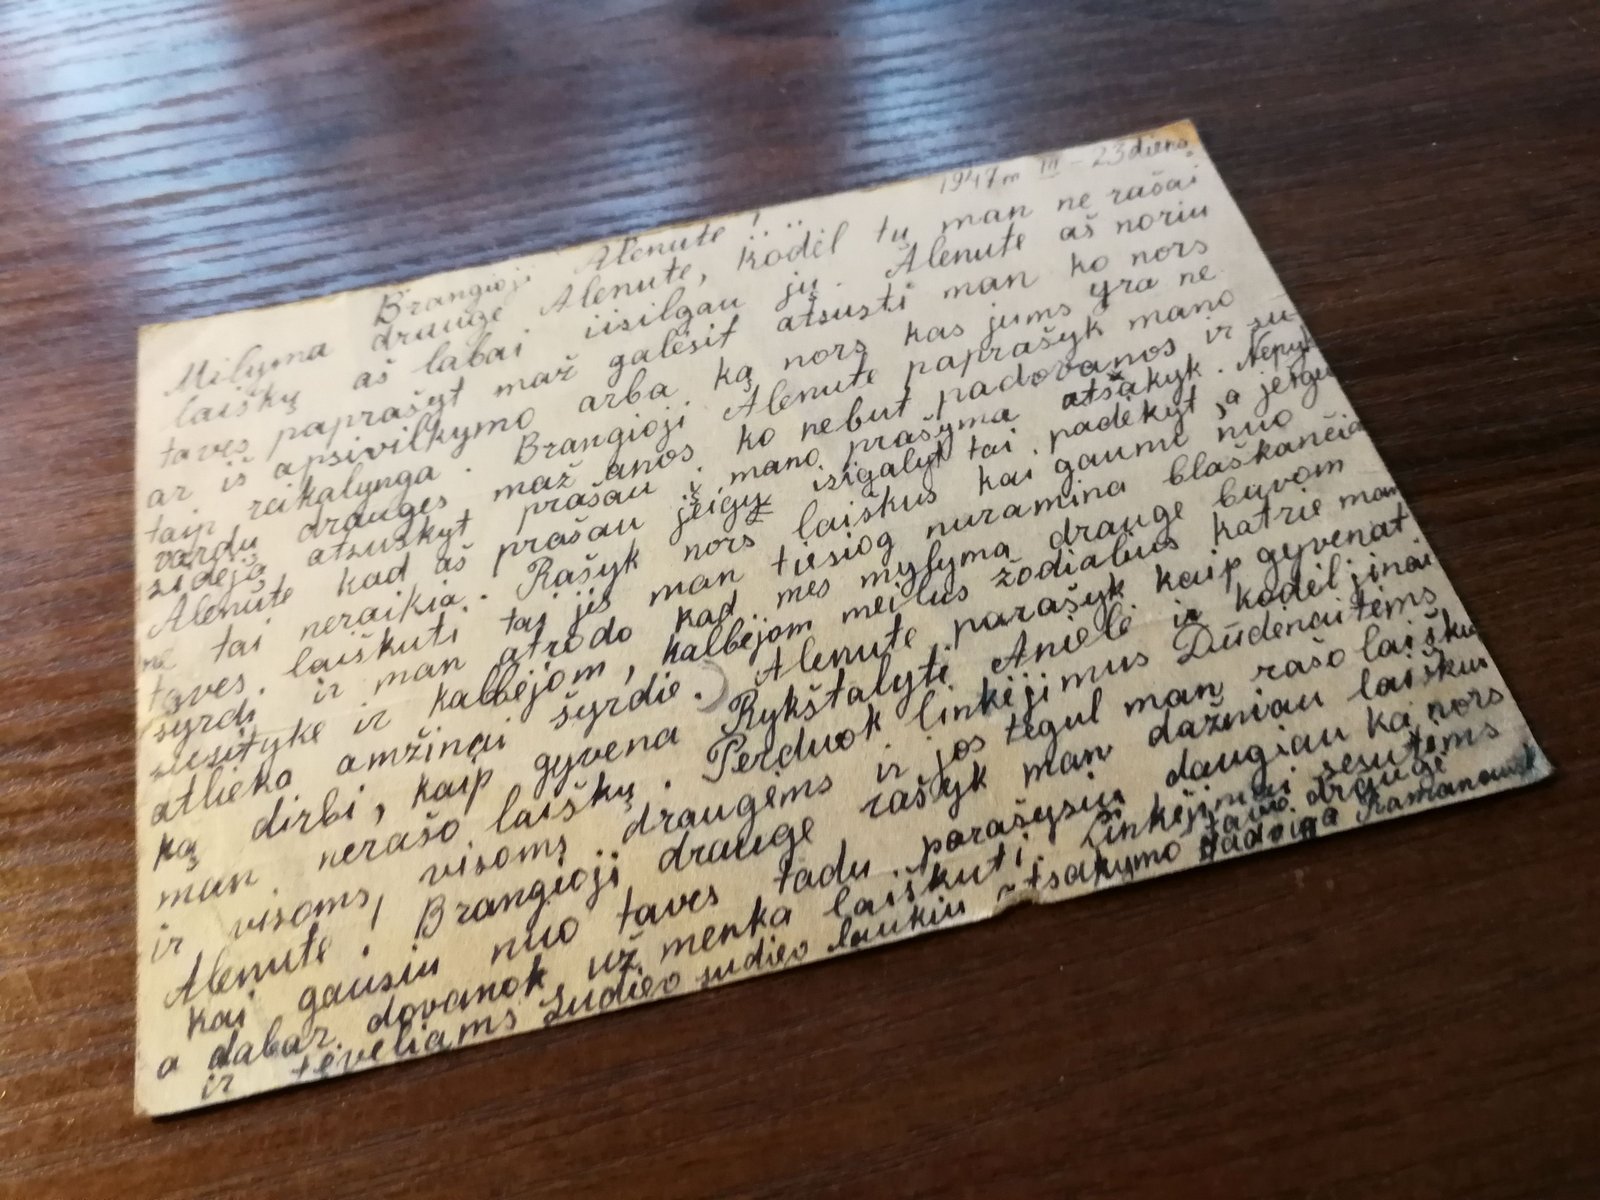 1947m III – 23 diena.
Brangioji Alenute!
Milyma drauge Alenute, kodėl tu man ne rašai
laiškų aš labai iisilgau jų. Alenute aš noriu
taves paprašyt maž galėsit atsusti man ko nors
ar iš apsivilkymo arba ką nors kas jums yra ne
taip reikalynga. Brangioji Alenute paprašyk mano
vardu drauges maž anos ko nebut padovanos ir su-
sidėja atsuskyt prašau į mano prašyma atsakyk. Nepyk
Alenute kad aš prašau jeigu isigalyt tai padėkyt, a jeigu
ne tai neraikia. Rašyk nors laiškus kai gaume nuo
taves laiškuti tai jis man tiesiog nuramina blaškančia
syrdi ir man atrodo kad mes mylyma drauge buvom
susitykę ir kalbėjom, kalbėjom meilus žodialius katrie man
atlieka amžinai šyrdie. Alenute parašyk kaip gyvenat
ką dirbi, kaip gyvena Rykštalyti Anielė ir kodėl jinai
man nerašo laiškų. Perduok linkėjimus Dūdėnaitėms
ir visoms, visoms draugėms ir jos tegul man rašo laiškus
Alenutė. Brangioji drauge rašyk man dažniau laiškus
kai gausiu nuo taves tadu parašysiu daugiau ką nors
a dabar dovanok už menka laiškuti. Linkėjimai sesutėms
ir tėveliams Sudiev sudiev laukiu atsakymo tavo draugė
Jadviga Ramanausk